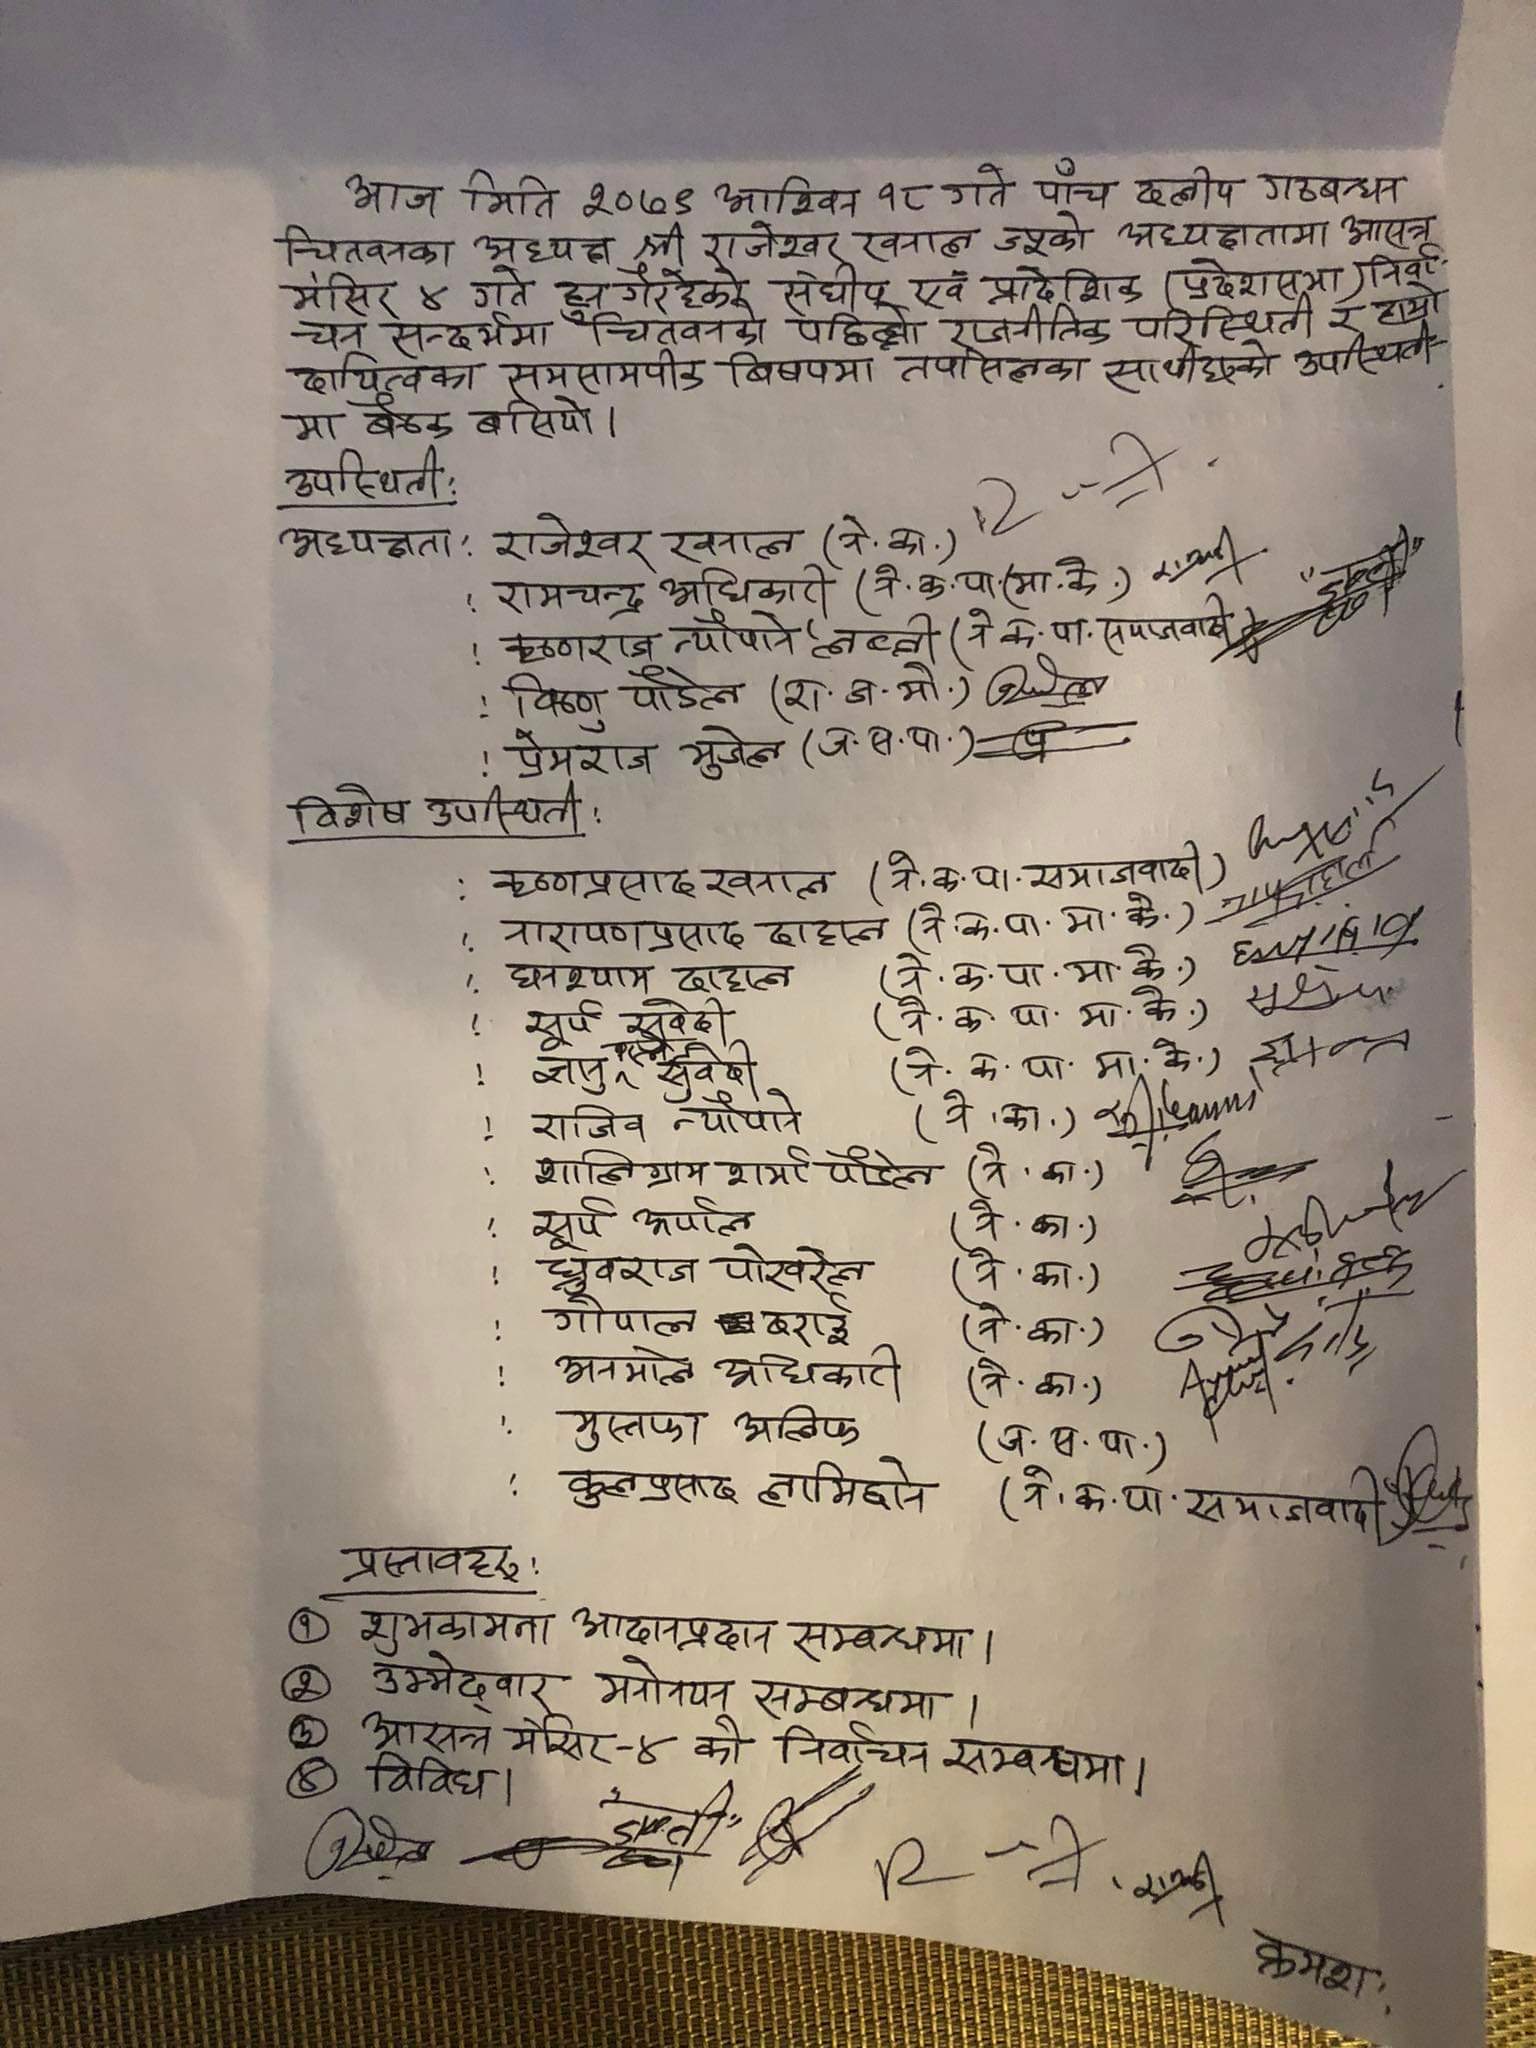 आज मिति २०७९ आश्विन १८ गते पाँच दलीय गठबन्धन
चितवनका अध्यक्ष श्री राजेश्वर खनाल ज्यूको अध्यक्षतामा आसन्न
मंसिर ४ गते हुन गैरहेको संघीय एवं प्रादेशिक (प्रदेशसभा) निर्वा-
चन सन्दर्भमा चितवनको पछिल्लो राजनीतिक परिस्थिती र हाम्रो
दायित्वका समसामयीक बिषयमा तपसिलका साथीहरुको उपस्थिती-
मा बैठक बसियो।
उपस्थिती:
अध्यक्षता: राजेश्वर खनाल (ने.का.)
: रामचन्द्र अधिकारी (ने.क.पा.(मा.के.)
: कृष्णराज न्यौपाने (ने.क.पा.समाजवादी)
: विष्णु पौडेल (रा.ज.मो.)
: प्रेमराज भुजेल (ज.स.पा.)
विशेष उपस्थिती:
: कृष्णप्रसाद खनाल (ने.क.पा.समाजवादी)
: नारायणप्रसाद दाहाल (ने.क.पा.मा.के.)
: घनश्याम दाहाल (ने.क.पा.मा.के.)
: सूर्य सुवेदी (ने.क.पा.मा.के.)
: सुवेदी (ने.क.पा.मा.के.)
: राजिव न्यौपाने (ने.का.)
: शालिग्राम शर्मा पौडेल (ने.का.)
: सूर्य अर्याल (ने.का.)
: ध्रुवराज पोखरेल (ने.का.)
: गोपाल दराई (ने.का.)
: अनमोल अधिकारी (ने.का.)
: मुस्तफा अलिफ (ज.स.पा.)
: कुलप्रसाद लामिछाने (ने.क.पा.समाजवादी)
प्रस्तावहरु:
① शुभकामना आदानप्रदान सम्बन्धमा।
② उम्मेद्वार मनोनयन सम्बन्धमा।
③ आसन्न मंसिर-४ को निर्वाचन सम्बन्धमा।
④ विविध।
क्रमश: